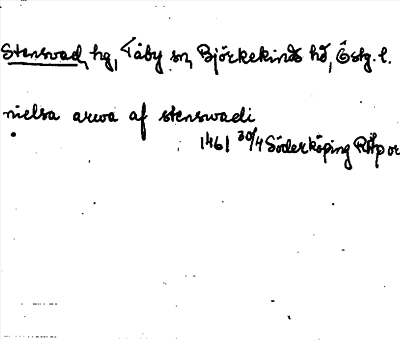 Stensvad, hg, Tåby sn, Björkekinds hd, Östg. l.
nielsa arwa af stenswadi
1461 30/4 Söderköping RAp or